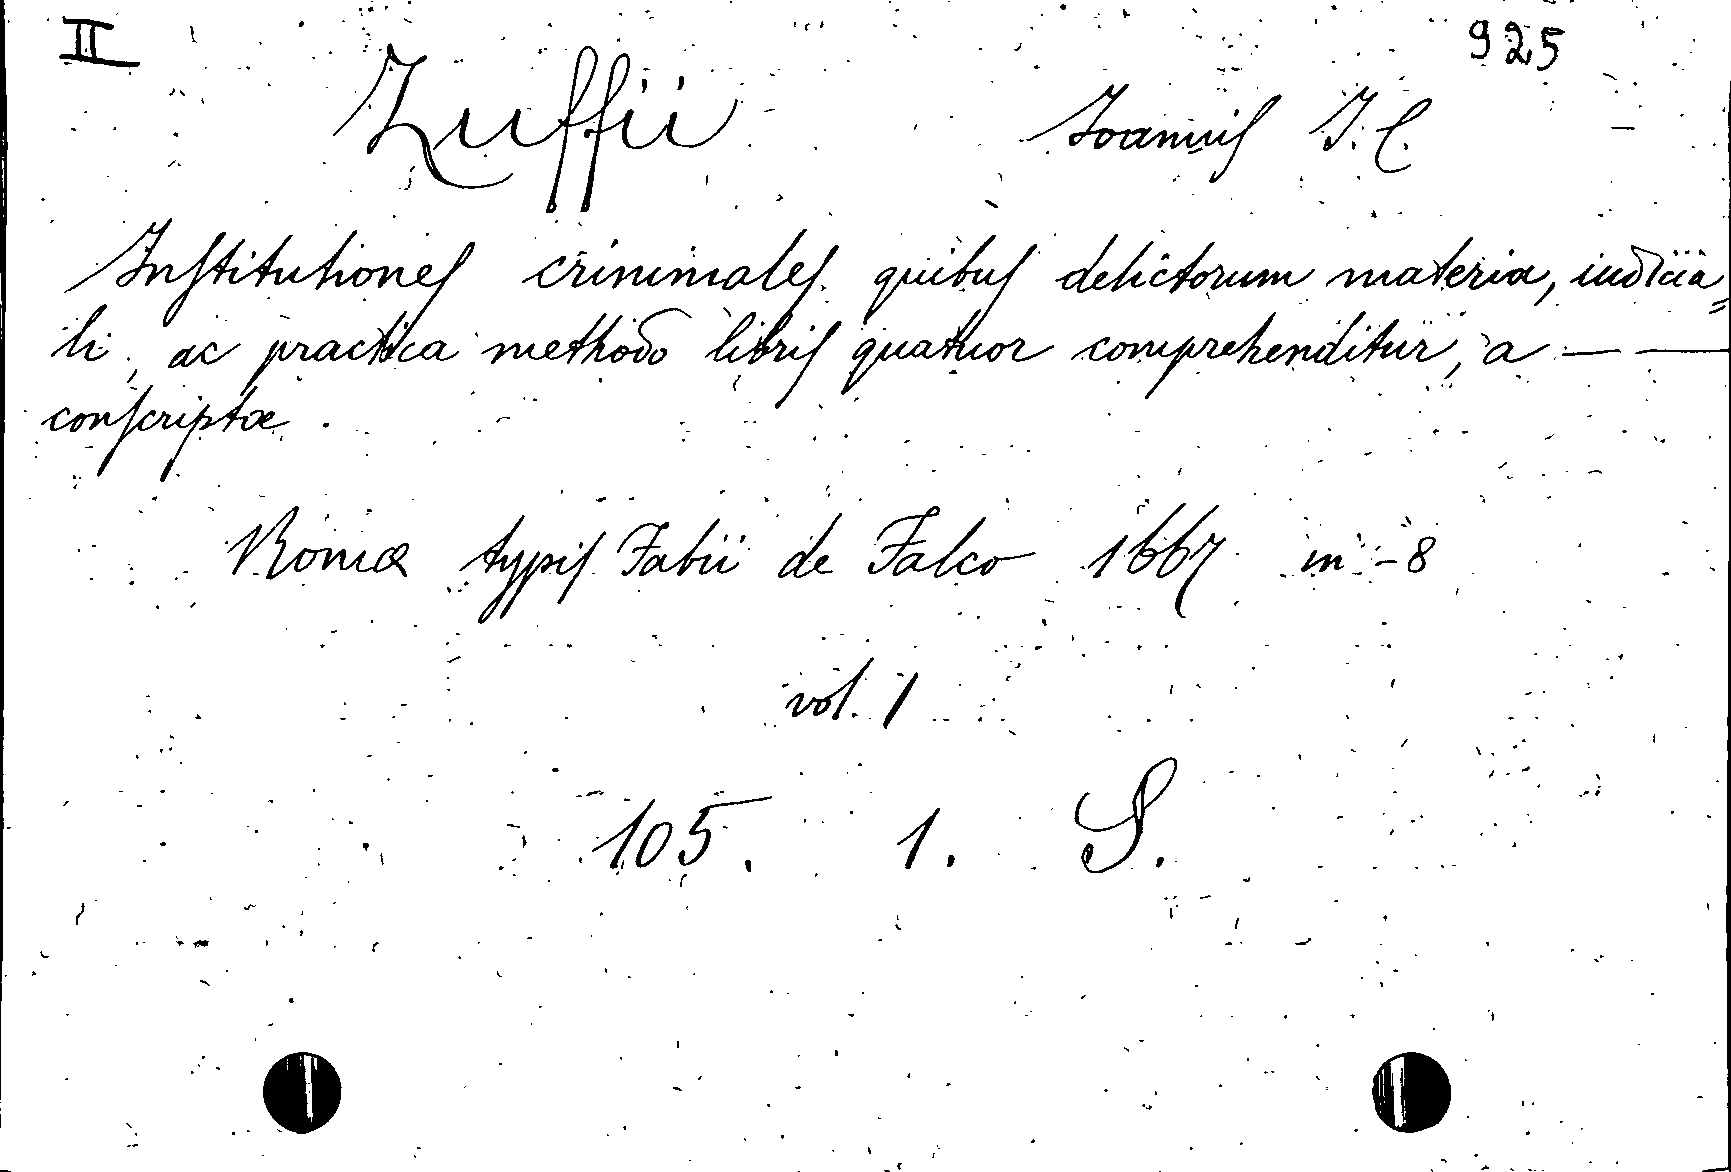 II 925
Zuffii Joannis J. C.
Institutiones criminales quibus delictorum materia, iudicia=
li, ac practica methodo libris quatuor comprehenditur, a — —
conscriptæ.
Romæ typis Fabii de Falco 1667 in -8
vol. 1
105. 1. S.